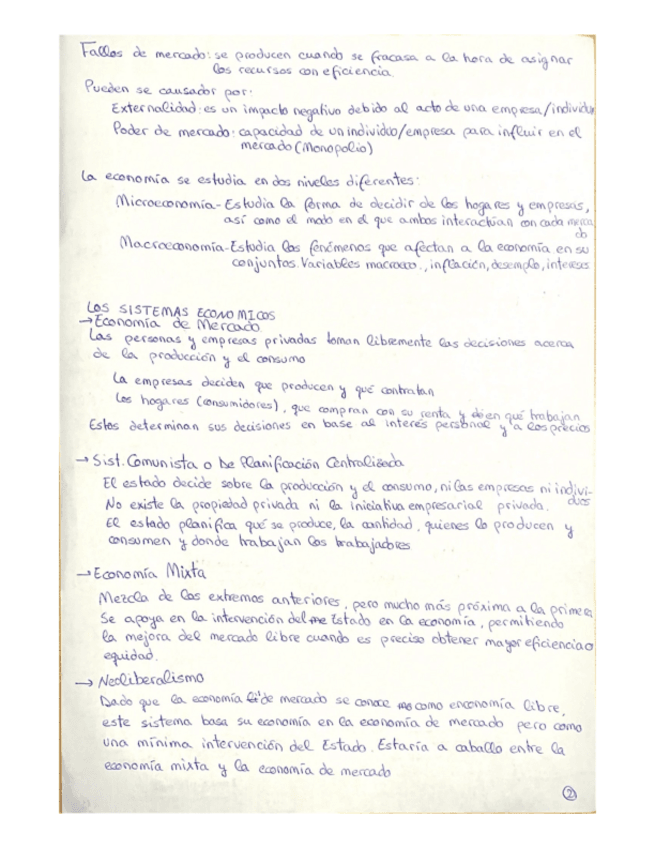 Fallos de mercado: se producen cuando se fracasa a la hora de asignar
los recursos con eficiencia.
Pueden se causador por:
Externalidad: es un impacto negativo debido al acto de una empresa/individuo
Poder de mercado: capacidad de un individuo/empresa para influir en el
mercado (Monopolio)
La economía se estudia en dos niveles diferentes:
Microeconomía - Estudia la forma de decidir de los hogares y empresas,
así como el modo en el que ambos interactúan con cada merca
do
Macroeconomía - Estudia los fenómenos que afectan a la economía en su
conjuntos. Variables macroeco., inflación, desemplo, intereses
LOS SISTEMAS ECONOMICOS
→ Economía de Mercado
Las personas y empresas privadas toman libremente las decisiones acerca
de la producción y el consumo
La empresas deciden que producen y qué contratan
Los hogares (consumidores), que compran con su renta y en qué trabajan
Estos determinan sus decisiones en base al interés personal y a los precios
→ Sist. Comunista o De Planificación Centralizada
El estado decide sobre la producción y el consumo, ni las empresas ni indivi-
duos
No existe la propiedad privada ni la iniciativa empresarial privada.
El estado planifica qué se produce, la cantidad, quienes lo producen y
consumen y donde trabajan los trabajadores
→ Economía Mixta
Mezcla de los extremos anteriores, pero mucho más próxima a la primera
Se apoya en la intervención del Estado en la economía, permitiendo
la mejora del mercado libre cuando es preciso obtener mayor eficiencia o
equidad.
→ Neoliberalismo
Dado que la economía de mercado se conoce como enconomía libre,
este sistema basa su economía en la economía de mercado pero como
una mínima intervención del Estado. Estaría a caballo entre la
economía mixta y la economía de mercado
2